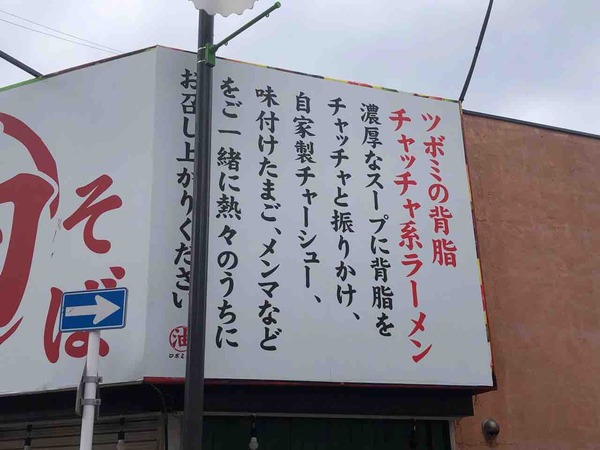 ツボミの背脂
チャッチャ系ラーメン
濃厚なスープに背脂を
チャッチャと振りかけ、
自家製チャーシュー、
味付けたまご、メンマなど
をご一緒に熱々のうちに
お召し上がりください
油
そば